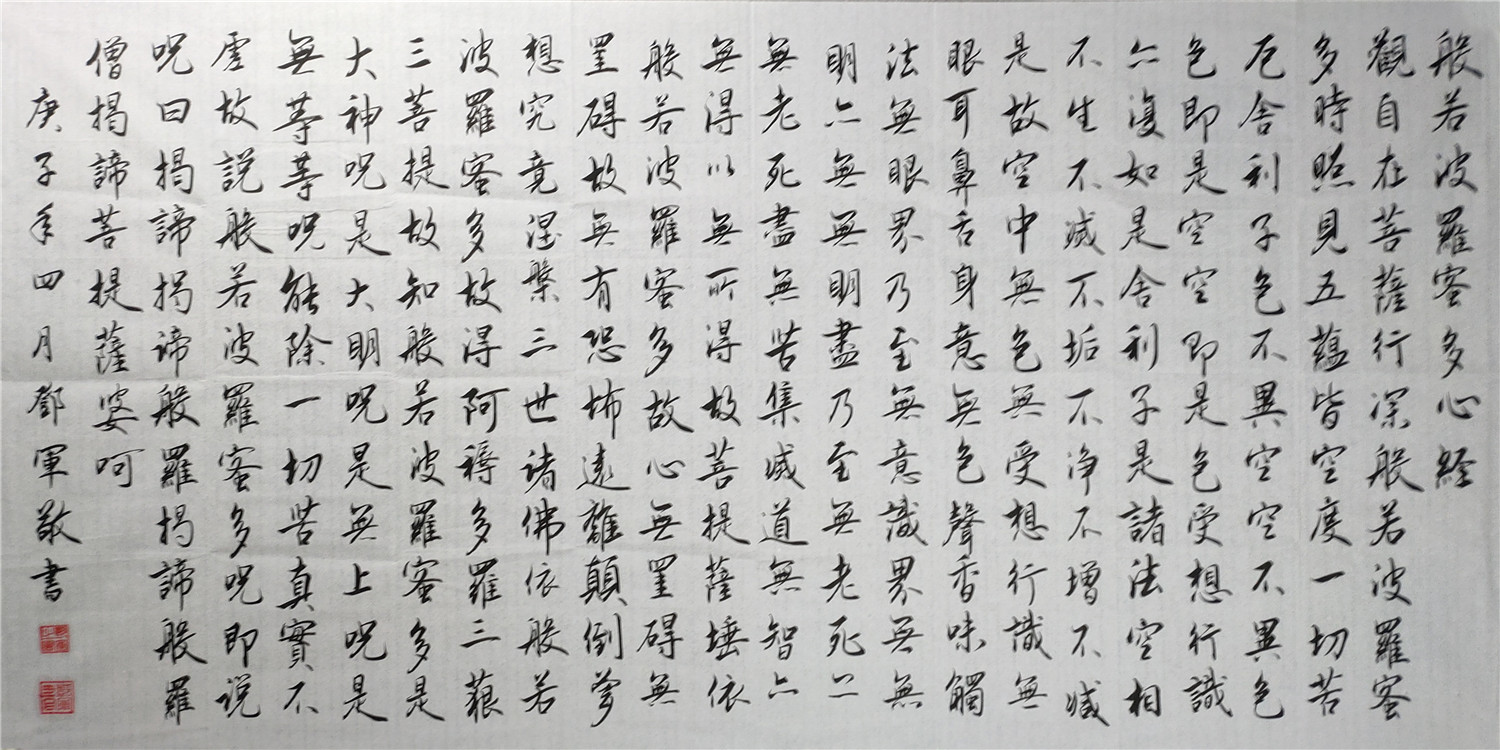 般若波羅蜜多心経
觀自在菩薩行深般若波羅蜜
多時照見五蘊皆空度一切苦
厄舍利子色不異空空不異色
色即是空空即是色受想行識
亦復如是舍利子是諸法空相
不生不滅不垢不净不增不減
是故空中無色無受想行識無
眼耳鼻舌身意無色聲香味觸
法無眼界乃至無意識界無無
明亦無無明盡乃至無老死亦
無老死盡無苦集滅道無智亦
無得以無所得故菩提薩埵依
般若波羅蜜多故心無罣碍無
罣碍故無有恐怖遠離顛倒夢
想究竟涅槃三世诸佛依般若
波羅蜜多故得阿耨多羅三藐
三菩提故知般若波羅蜜多是
大神呪是大明呪是無上呪是
無等等呪能除一切苦真實不
虛故説般若波羅蜜多呪即说
呪曰揭諦揭諦般羅揭諦般羅
僧揭諦菩提薩婆呵
庚子年四月鄧軍敬書